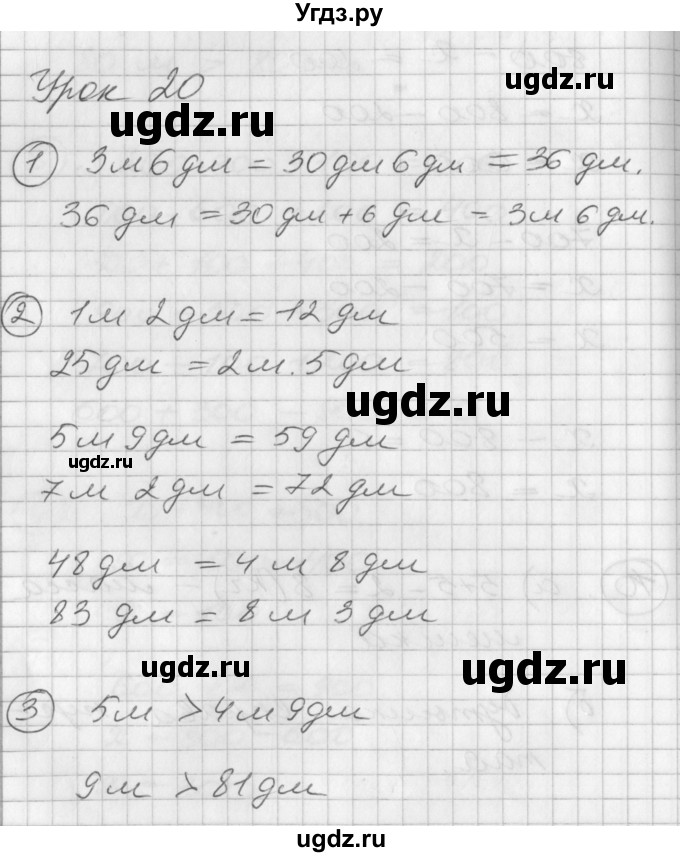 Угдз.ру
Урок 20
ugdz.ru
① 3м 6дм = 30дм 6дм = 36 дм.
36 дм = 30дм + 6 дм = 3м 6 дм.
ugdz.ru
② 1м 2дм = 12 дм
25дм = 2м. 5дм
ugdz.ru
5м 9дм = 59 дм
ugdz.ru
7м 2дм = 72 дм
48дм = 4м 8 дм
83 дм = 8м 3 дм
ugdz.ru
ugdz.ru
③ 5м > 4м 9дм
9м > 81дм
ugdz.ru
ugdz.ru